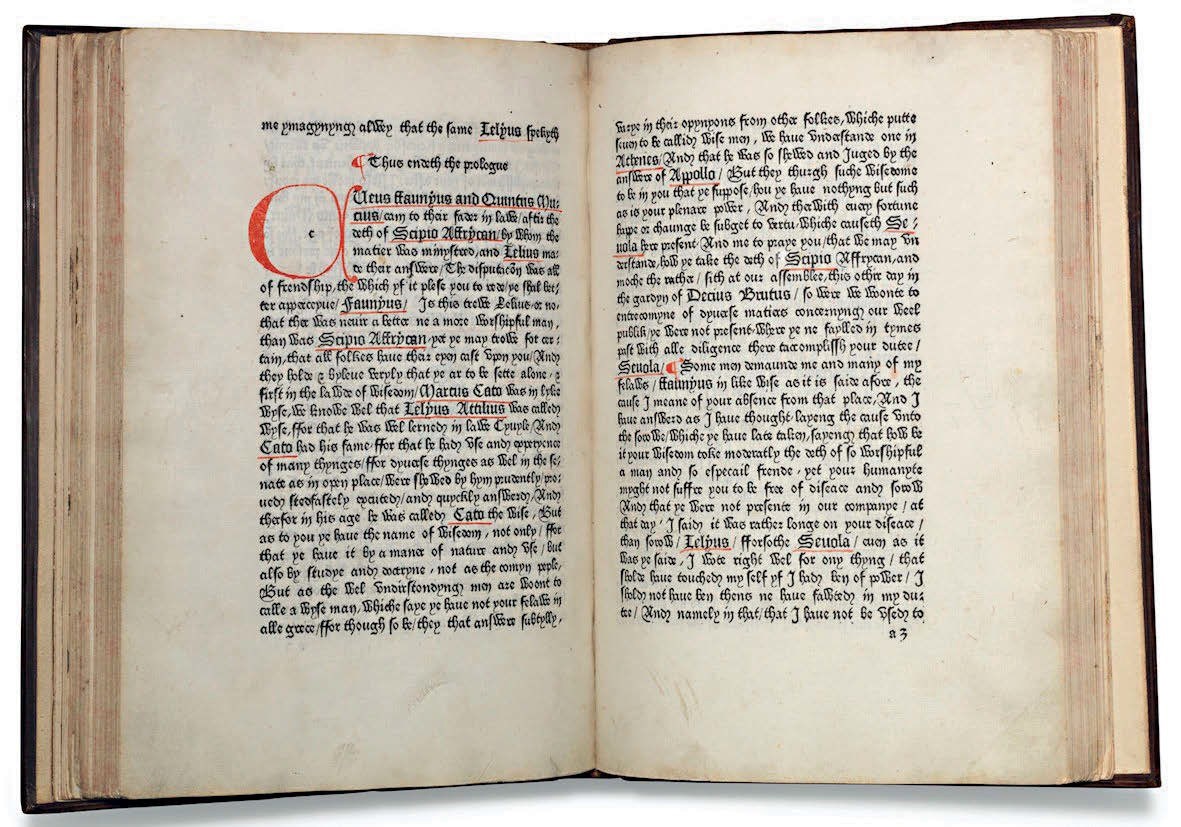 me ymagynyng alwey that the same Lelyus spekyth
¶ Thus endeth the prologue
c
Ueus ffaunyus and Quintus Mu-
cius/cam to their fader in lawe/aftir the
deth of Scipio Affrycan/by whom the
matier was mynystred,and Lelius ma-
de their answere/The disputicōn was all
of frendship,the which yf it plese you to rede/ye shal bet-
ter apperceyue/ Faunyus/ Is this trewe Lelius or no-
that ther was neuir a better ne a more worshipful man,
than was Scipio Affrycan-yet ye may trowe for cer-
tain,that all folkes haue their eyen cast vpon you/And
they holde & byleue veryly that ye ar to be sette alone,&
first in the lawde of wisedom/Marcus Cato was in lyke
wyse,we knowe wel that Lelyus Attilius was called
wyse,ffor that he was wel lerned in lawe Cyuyle/And
Cato had his fame-ffor that he had vse and experyence
of many thynges/ffor dyuerse thynges as wel in the se-
nate as in open place/were shewed by hym prudently/pro-
uedy stedfastely excited/and quyckly answerd/And
therfor in his age he was called Cato the wise, But
as to you ye haue the name of wisedom, not only/ffor
that ye haue it by a maner of nature and vse/but
also by studye and doctryne, not as the comyn peple,
But as the wel vndirstondyng men are woont to
calle a wyse man,whiche saye ye haue not your felawe in
alle grece/ffor though so be/they that answere subtylly,
varye in their opynyons from other folkes,whiche putte
seuen to be callid wise men, we haue vnderstande one in
Actenes/And that he was so shewed and Juged by the
answere of Appollo/ But they thurgh suche wisedome
to be in you that ye suppose/hou ye haue nothyng but such
as is your plenare power, And therwith euery fortune
hape or chaunge be subget to vertu/whiche causeth Se-
uola here present-And me to praye you/that we may vn
derstande,how ye take the deth of Scipio Affrycan,and
moche the rather/ sith at our assemblee,this other day in
the gardyn of Decius Brutus/ so were we woonte to
entrecomyne of dyuerse matiers concernyng our weel
publik/ye were not present-where ye ne faylled in tymes
past with alle diligence there taccomplissh your dutee/
Sceuola/ ¶ Some men demaunde me and many of my
felaws/ffaunyus in like wise as it is saide afore, the
cause I meane of your absence from that place,And I
haue answerd as I haue thought-layeng the cause vnto
the sorowe/whiche ye haue late taken,sayeng that how be
it your wisedom toke moderatly the deth of so worshipful
a man and so especail frende, yet your humanyte
myght not suffre you to be free of diseace and sorow
And that ye were not presente in our companye/at
that day, I said it was rather longe on your diseace/
than sorow/ Lelyus/ fforsothe Sceuola/ euen as it
was ye saide, I wote right wel for ony thyng/ that
sholde haue touched my self yf I had ben of power/ I
shold not haue ben thens ne haue fawted in my du-
tee/ And namely in that/that I haue not be vsed to
a3